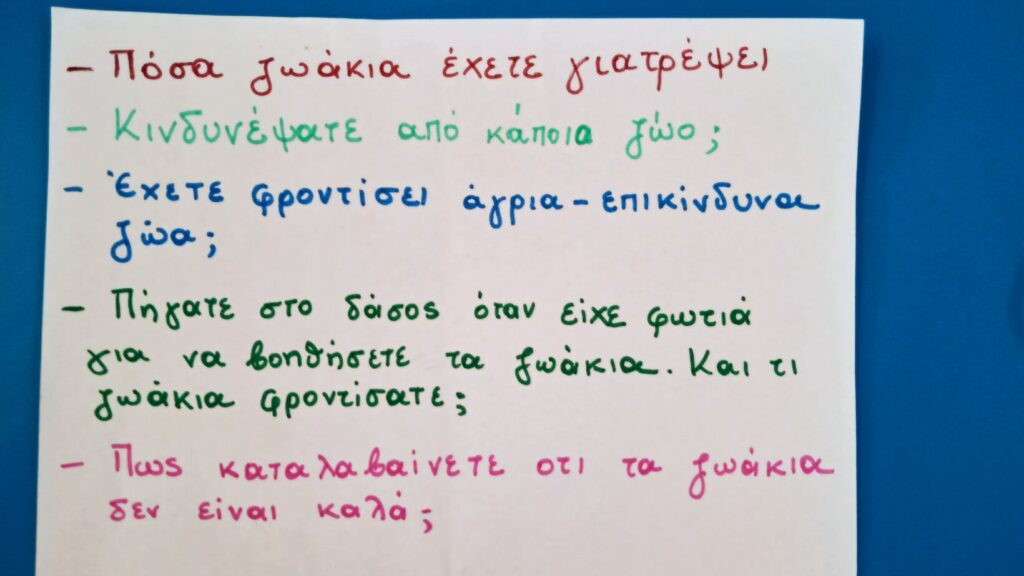 - Πόσα ζωάκια έχετε γιατρέψει
- Κινδυνέψατε από κάποια ζώο;
- Έχετε φροντίσει άγρια - επικίνδυνα
ζώα;
- Πήγατε στο δάσος όταν είχε φωτιά
για να βοηθήσετε τα ζωάκια. Και τι
ζωάκια φροντίσατε;
- Πως καταλαβαίνετε οτι τα ζωάκια
δεν είναι καλά;